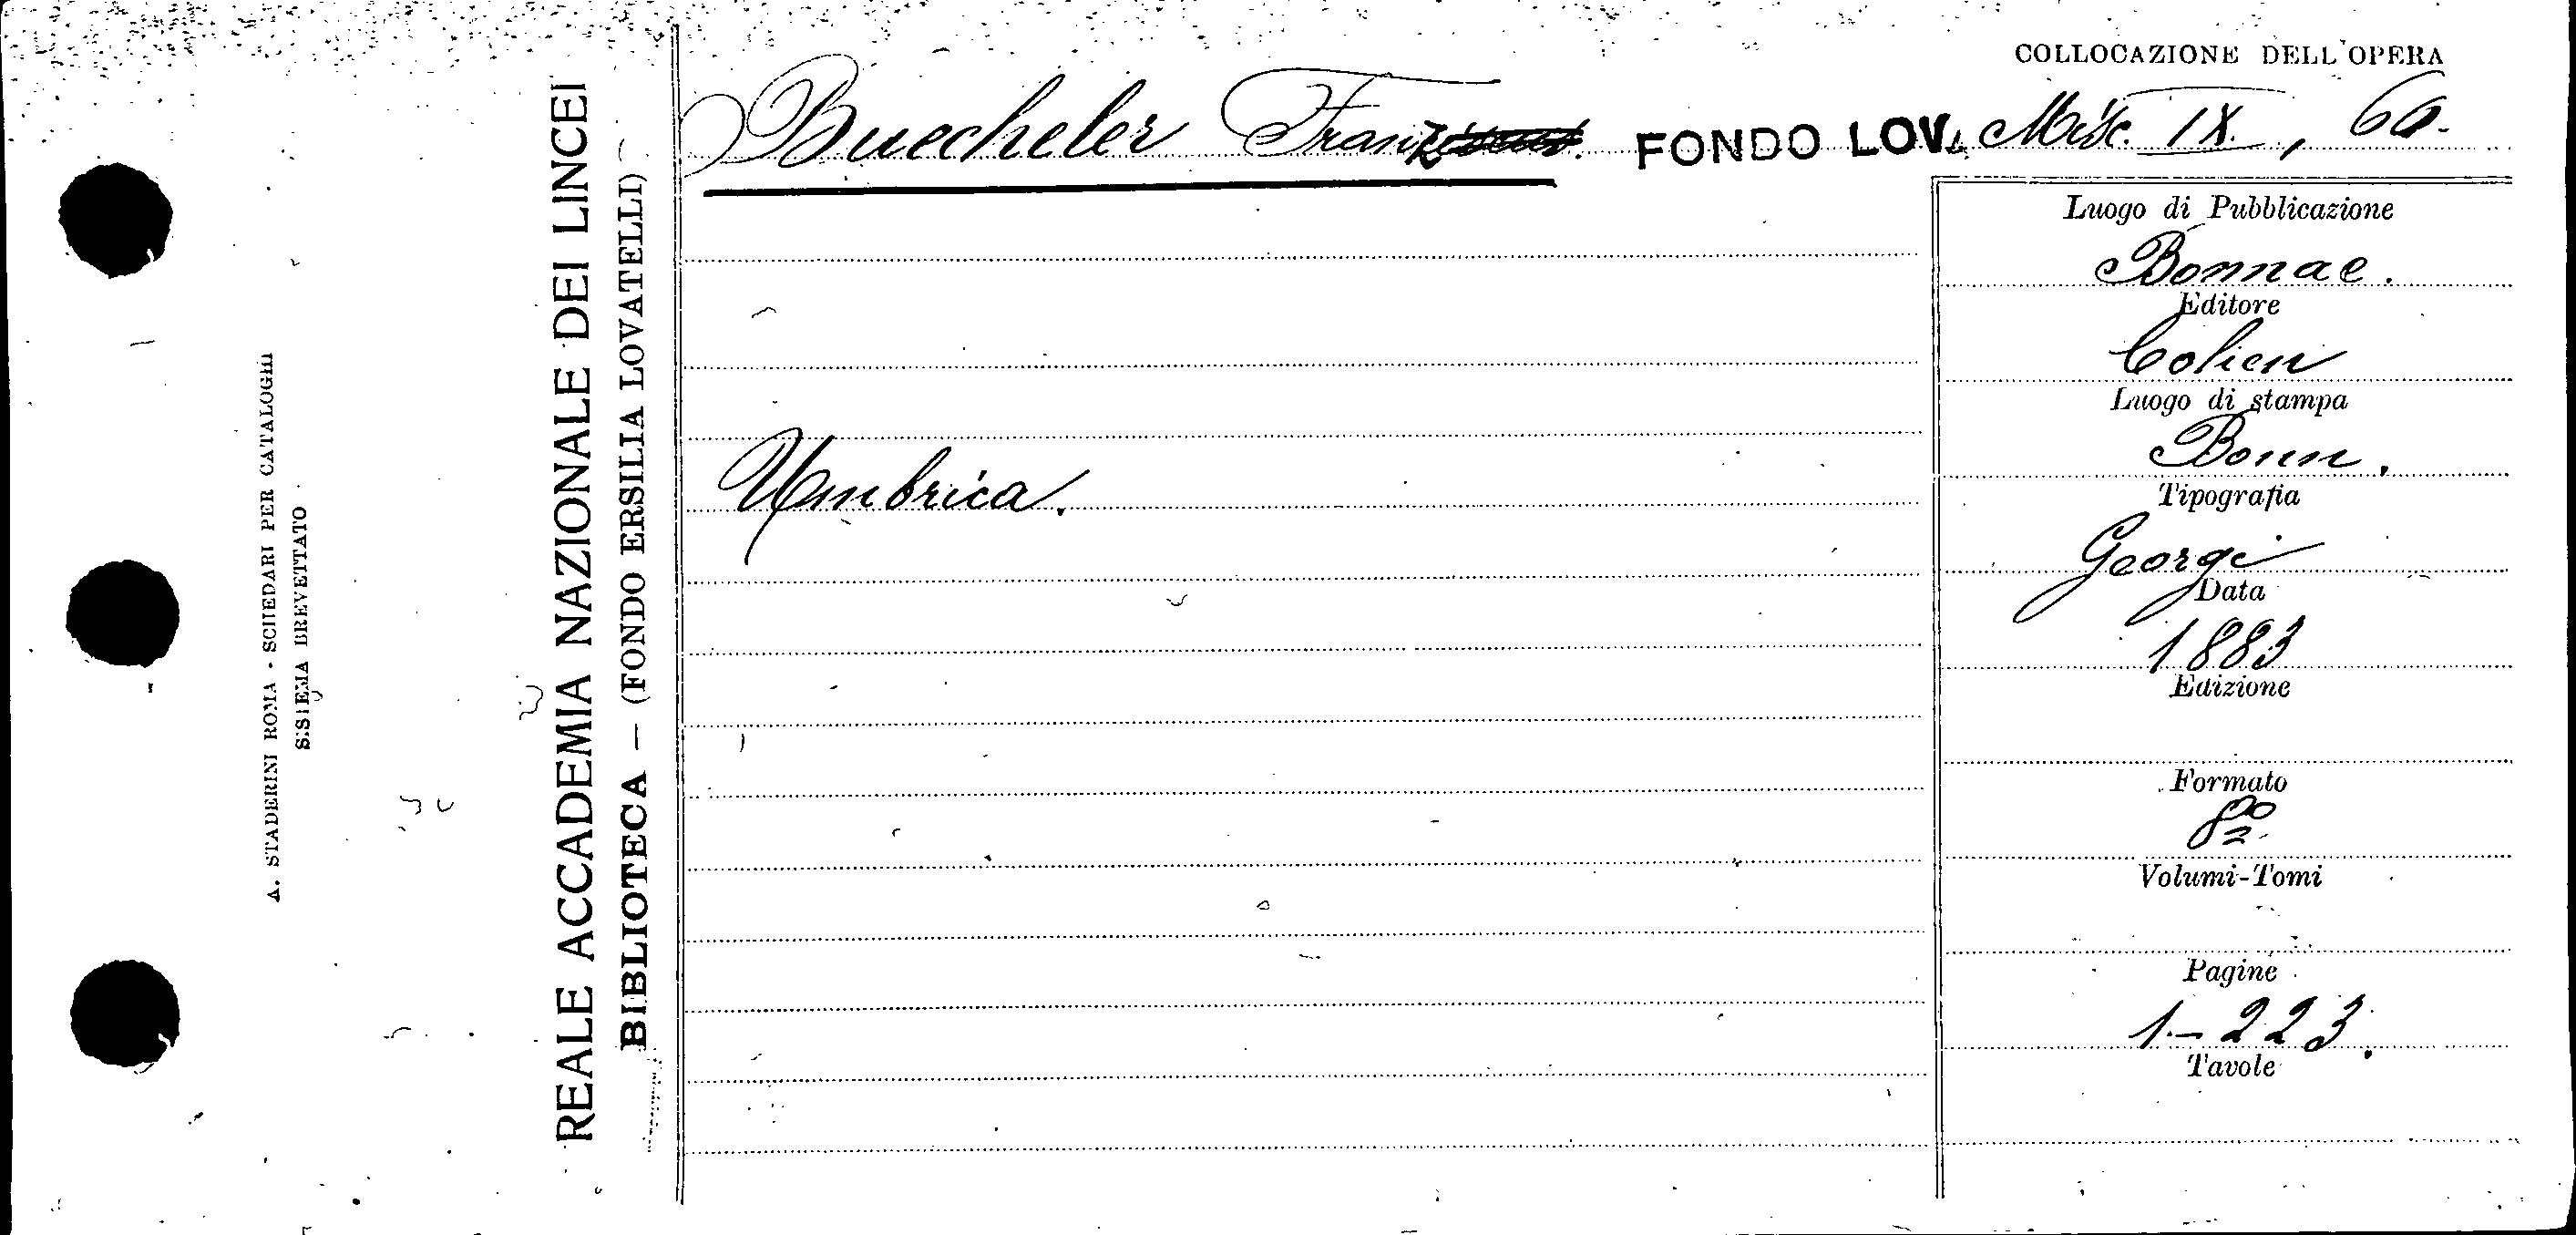 COLLOCAZIONE DELL'OPERA
Buecheler Franz FONDO LOV. Misc. IX, 60.
Luogo di Pubblicazione
Bonnae.
Editore
Cohen
Luogo di stampa
Bonn.
Tipografia
Georgi
Data
1883
Edizione
Formato
8º
Volumi-Tomi
Pagine
1-223.
Tavole
Umbrica.
REALE ACCADEMIA NAZIONALE DEI LINCEI
BIBLIOTECA — (FONDO ERSILIA LOVATELLI)
A. STADERINI ROMA - SCHEDARI PER CATALOGHI
SISTEMA BREVETTATO